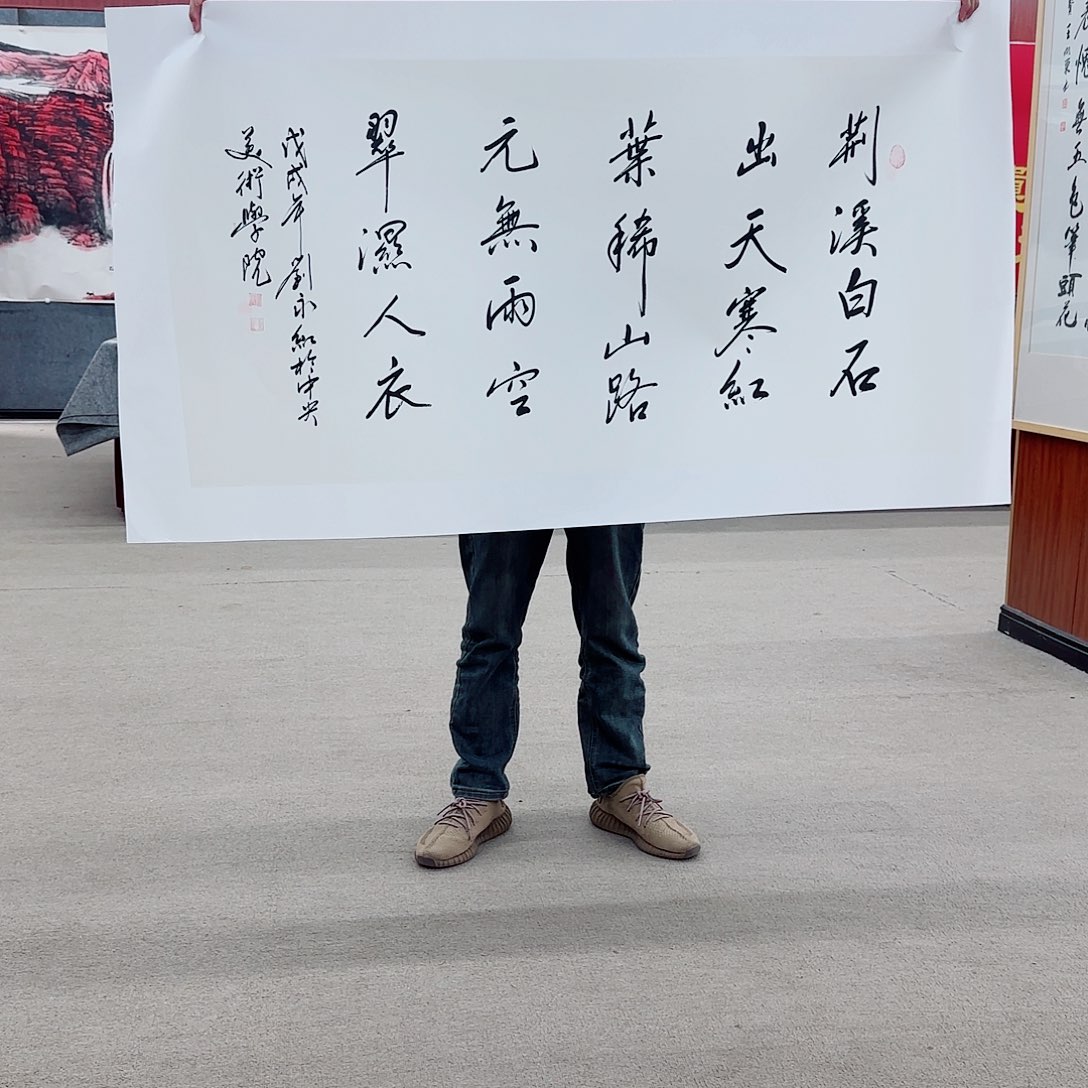 荆溪白石
出天寒紅
葉稀山路
元無雨空
翠濕人衣
戊戌年劉永紅於中央
美術學院
五色筆頭花